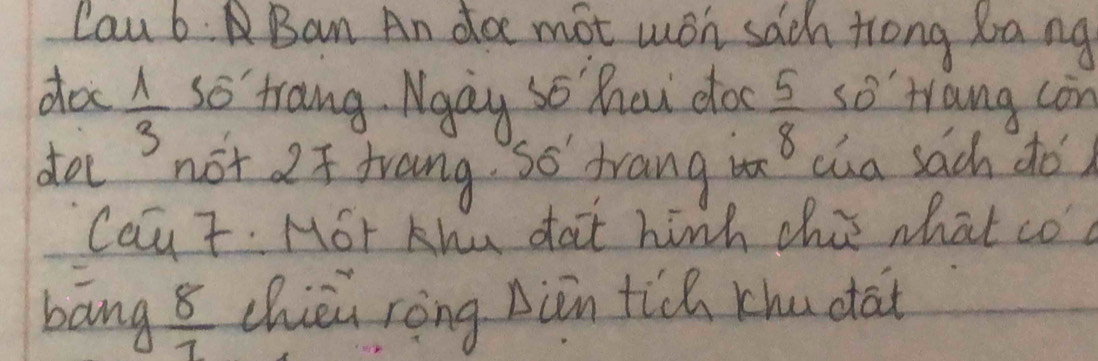 Câu 6: Bạn An đọc một món sách trong ba ng
đọc 1/3 số trang. Ngày số hai đọc 5/8 số trang còn
đọc nốt 27 trang. Số trang của sách đó
Câu 7: Một khu đất hình chữ nhật có
bằng 8/7 chiều rộng Diện tích khu đất